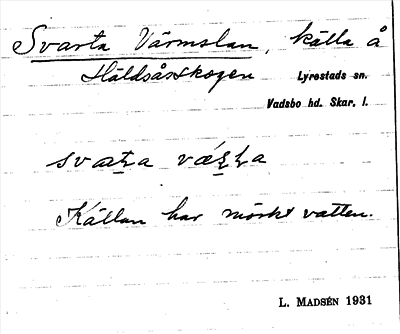 Svarta Värmslan, källa å
Håldsåsskogen Lyrestads sn.
Vadsbo hd. Skar. l.
Källan har mörkt vatten.
L. MADSÉN 1931